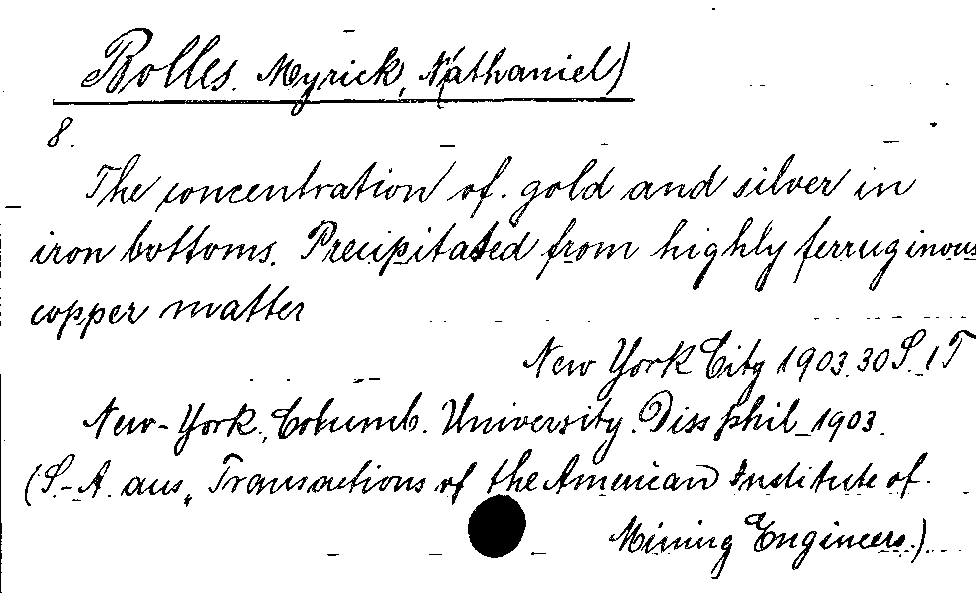 Bolles. Myrick, Nathaniel)
8.
The concentration of. gold and silver in
iron bottoms. Precipitated from highly ferruginous
copper matter
New York City 1903. 30 S. 1 T
New-York., Columb. University. Diss phil_1903.
(S.-A. aus „Transactions of the American Institute of.
Mining Engineers.)